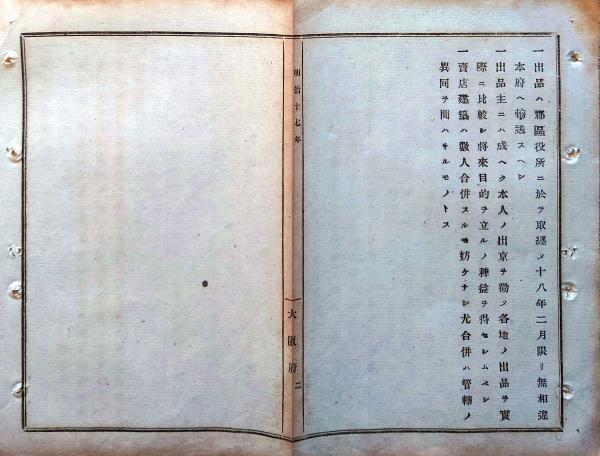 一出品ハ郡區役所ニ於テ取纒メ十八年二月限リ無相違
本府ヘ輸送スヘシ
一出品主ニハ成ヘク本人ノ出京ヲ勸メ各地ノ出品ヲ實
際ニ比較シ將來目的ヲ立ルノ裨益ヲ得セシムヘシ
一賣店建築ハ數人合併スルモ妨ケナシ尤合併ハ管轄ノ
異同ヲ問ハサルモノトス
明治十七年
大阪府 二